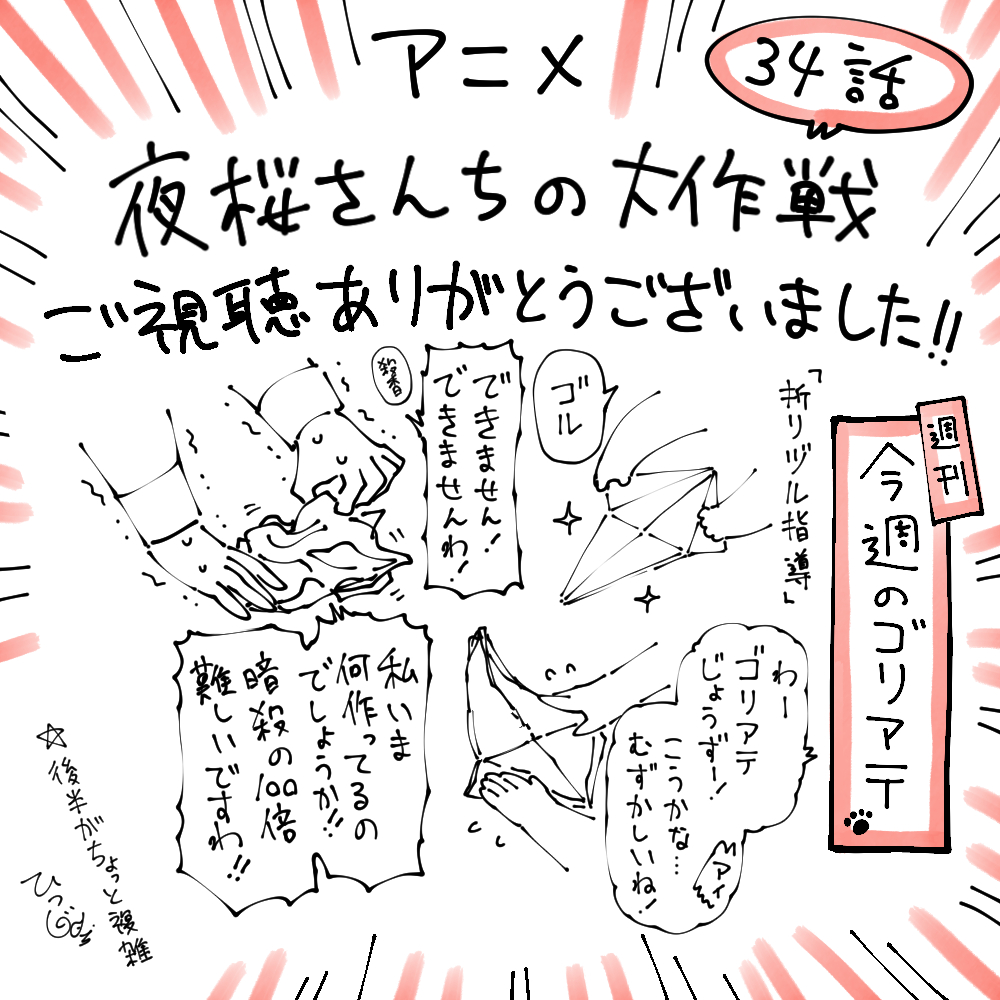 アニメ
34話
夜桜さんちの大作戦
ご視聴ありがとうございました!!
週刊
今週のゴリアテ
「折りヅル指導」
ゴル
できません!
できませんわ!
殺香
わー
ゴリアテ
じょうずー!
こうかな…
むずかしいね!
アイ
私いま
何作ってるの
でしょうか!!
暗殺の100倍
難しいですわ!!
☆後半がちょっと複雑
ひつじ